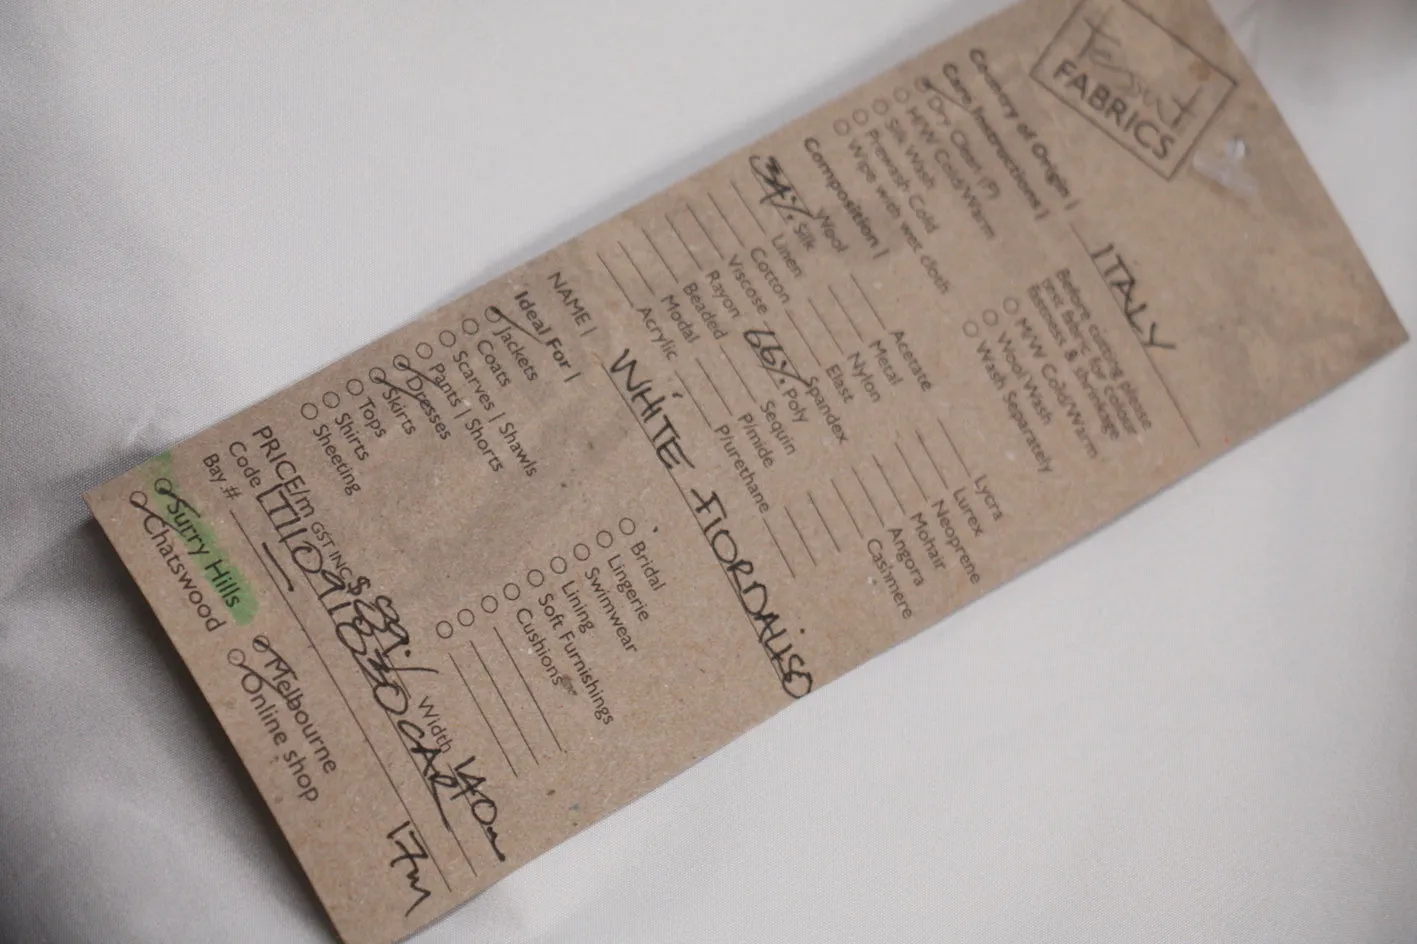 Tessuti
FABRICS
Country of Origin | ITALY
Care Instructions |
Dry Clean (P)
H/W Cold/Warm
Silk Wash
Prewash Cold
Wipe with wet cloth
Before cutting please
test fabric for colour
fastness & shrinkage
M/W Cold/Warm
Wool Wash
Wash Separately
Composition |
Wool
34% Silk
Linen
Cotton
Viscose
Rayon
Beaded
Modal
Acrylic
Acetate
Metal
Nylon
Elast
Spandex
66% Poly
Sequin
P/mide
P/urethane
Lycra
Lurex
Neoprene
Mohair
Angora
Cashmere
NAME | WHITE FIORDALISO
Ideal For |
Jackets
Coats
Scarves | Shawls
Pants | Shorts
Dresses
Skirts
Tops
Shirts
Sheeting
Bridal
Lingerie
Swimwear
Lining
Soft Furnishings
Cushions
PRICE/m GST INC $ Width 140
Code
Bay # 17m
Surry Hills
Chatswood
Melbourne
Online shop